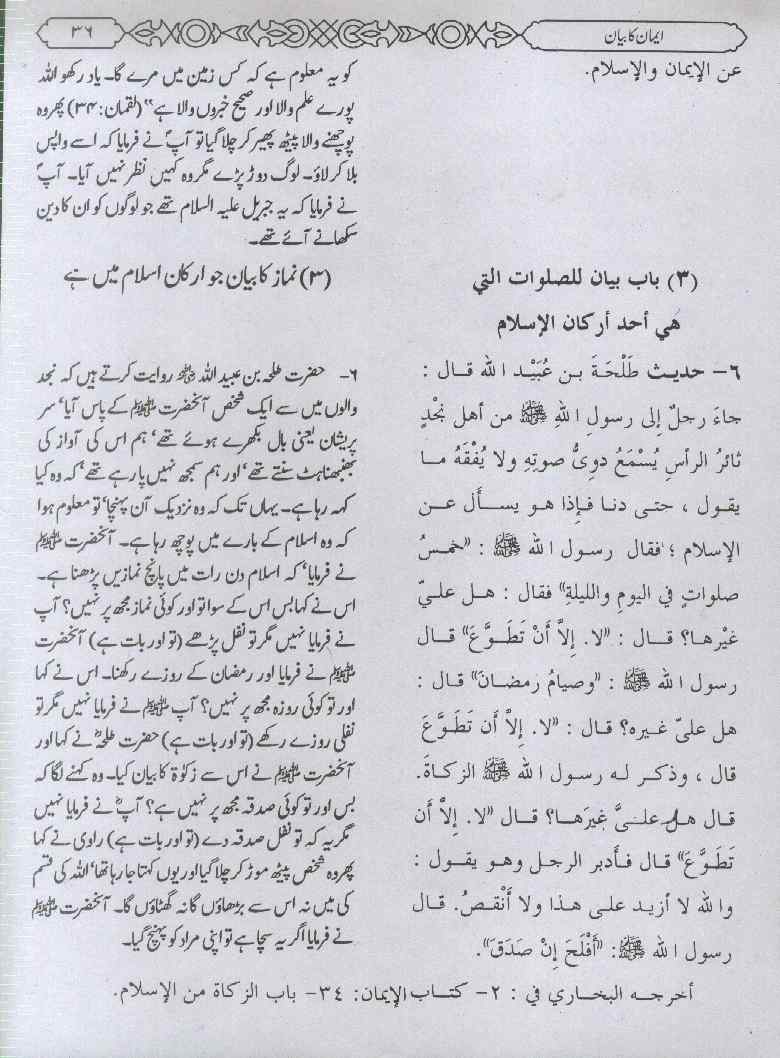 ایمان کا بیان
۳۶
عن الإيمان والإسلام.
(۳) باب بيان للصلوات التي
هي أحد أركان الإسلام
٦- حديث طَلْحَةَ بن عُبَيْد الله قال :
جاءَ رجلٌ إلى رسول اللهِ ﷺ من أهل نجْدٍ
ثائرُ الرأسِ يُسْمَعُ دوِىُّ صوتِهِ ولا يُفْقَهُ ما
يقول ، حتى دنا فإذا هو يسأل عن
الإسلام ؛ فقال رسول الله ﷺ : «خمسُ
صلواتٍ في اليومِ والليلةِ» فقال : هل عليّ
غيْرها؟ قال : «لا. إلاَّ أَنْ تَطَوَّعَ» قال
رسول الله ﷺ : «وصيامُ رمضانَ» قال :
هل علىّ غيره؟ قال : «لا. إلاَّ أن تَطَوَّعَ
قال ، وذكر له رسول الله ﷺ الزكاةَ.
قال هل علىَّ غيرَها؟ قال «لا. إلاَّ أن
تَطَوَّعَ» قال فأدبر الرجل وهو يقول :
والله لا أزيد على هذا ولا أَنْقصُ. قال
رسول الله ﷺ: «أَفْلَحَ إنْ صَدَقَ».
کو یہ معلوم ہے کہ کس زمین میں مرے گا۔ یاد رکھو اللہ
پورے علم والا اور صحیح خبروں والا ہے" (لقمان: ۳۴) پھر وہ
پوچھنے والا پیٹھ پھیر کر چلا گیا تو آپؐ نے فرمایا کہ اسے واپس
بلا کر لاؤ۔ لوگ دوڑ پڑے مگر وہ کہیں نظر نہیں آیا۔ آپؐ
نے فرمایا کہ یہ جبریل علیہ السلام تھے جو لوگوں کو ان کا دین
سکھانے آئے تھے۔
(۳) نماز کا بیان جو ارکان اسلام میں ہے
۶- حضرت طلحہ بن عبید اللہ ؓ روایت کرتے ہیں کہ نجد
والوں میں سے ایک شخص آنحضرت ﷺ کے پاس آیا' سر
پریشان یعنی بال بکھرے ہوئے تھے' ہم اس کی آواز کی
بھنبھناہٹ سنتے تھے' اور ہم سمجھ نہیں پا رہے تھے' کہ وہ کیا
کہہ رہا ہے۔ یہاں تک کہ وہ نزدیک آن پہنچا' تو معلوم ہوا
کہ وہ اسلام کے بارے میں پوچھ رہا ہے۔ آنحضرت ﷺ
نے فرمایا' کہ اسلام دن رات میں پانچ نمازیں پڑھنا ہے۔
اس نے کہا بس اس کے سوا تو اور کوئی نماز مجھ پر نہیں؟ آپ
نے فرمایا نہیں مگر تو نفل پڑھے (تو اور بات ہے) آنحضرت
ﷺ نے فرمایا اور رمضان کے روزے رکھنا۔ اس نے کہا
اور تو کوئی روزہ مجھ پر نہیں؟ آپ ﷺ نے فرمایا نہیں مگر تو
نفلی روزے رکھے (تو اور بات ہے) حضرت طلحہؓ نے کہا اور
آنحضرت ﷺ نے اس سے زکوٰۃ کا بیان کیا۔ وہ کہنے لگا کہ
بس اور تو کوئی صدقہ مجھ پر نہیں ہے؟ آپؐ نے فرمایا نہیں
مگر یہ کہ تو نفل صدقہ دے (تو اور بات ہے) راوی نے کہا
پھر وہ شخص پیٹھ موڑ کر چلا گیا اور یوں کہتا جا رہا تھا' اللہ کی قسم
کی میں نہ اس سے بڑھاؤں گا نہ گھٹاؤں گا۔ آنحضرت ﷺ
نے فرمایا اگر یہ سچا ہے تو اپنی مراد کو پہنچ گیا۔
أخرجه البخاري في : ۲- كتاب الإيمان: ٣٤- باب الزكاة من الإسلام.